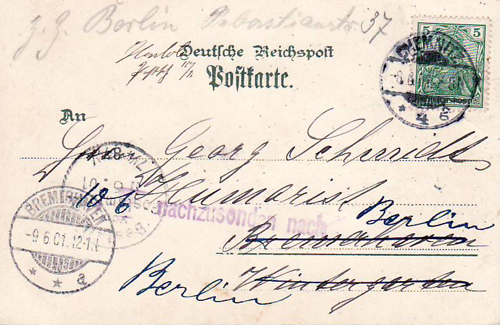 z. Z. Berlin Sebastianstr 37
Deutsche Reichspost
Postkarte.
5
CHEMNITZ
An
Herrn Georg Schmidt
Humorist
10 6
nachzusenden nach
Berlin
Bremerhaven
Wintergarten
Berlin
BREMERHAVEN
-9.6.01.12-1
* * a